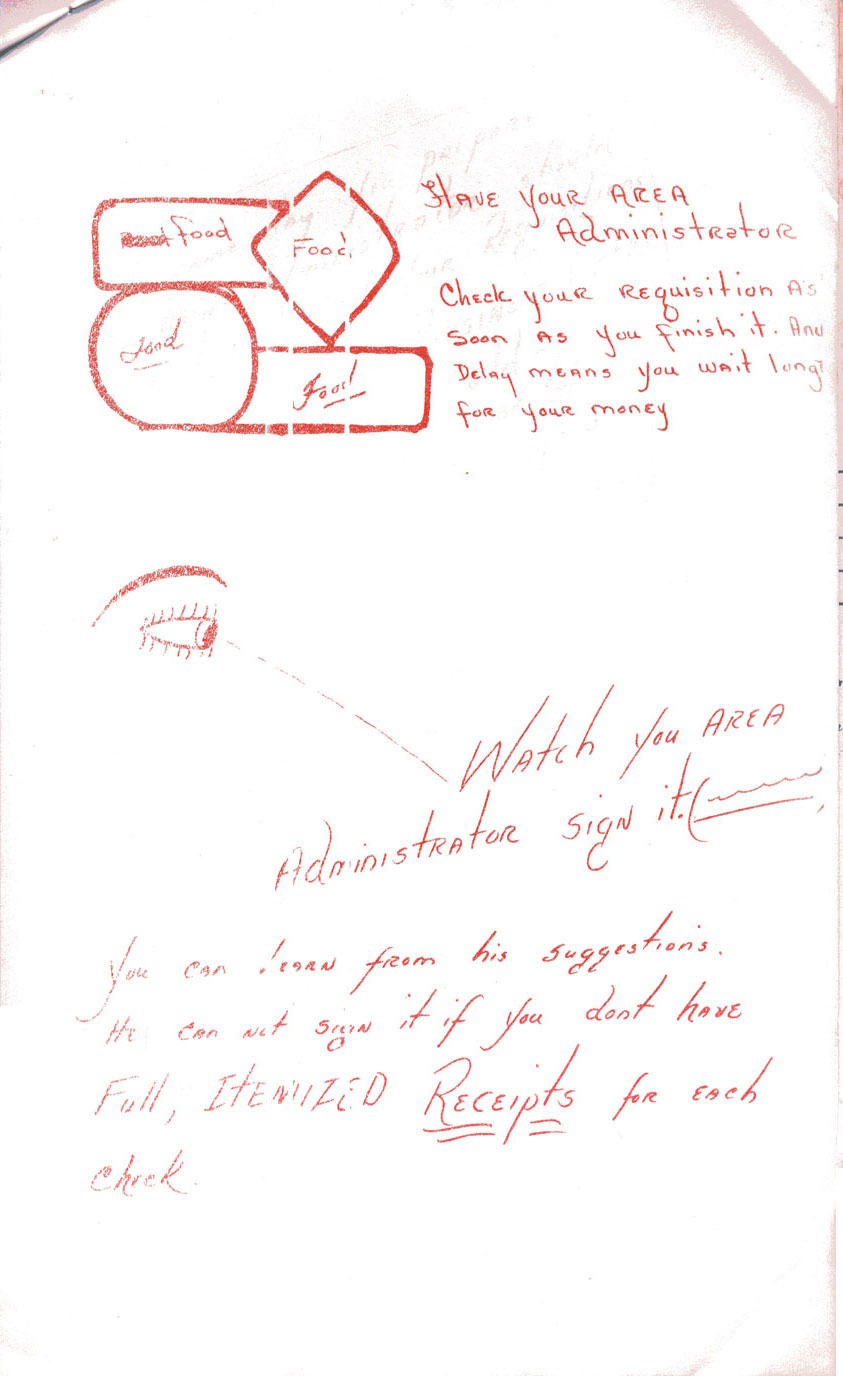 Food
Food
Food
Food
HAVE YOUR AREA
Administrator
Check your Requisition As
soon As you finish it. Any
Delay means you wait long
for your money
WAtch You AREA
AdministRAtOR sign it.
You can learn from his suggestions.
He can not sign it if you dont have
Full, ItEMIZED Receipts for each
check.